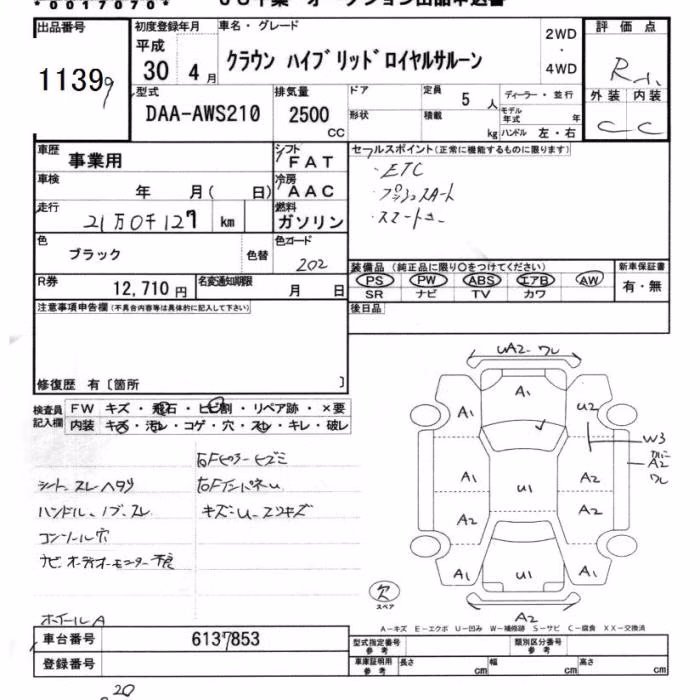 *0017070*
出品番号
11399
初度登録年月
平成
30年 4月
車名・グレード
クラウン ハイブリッドロイヤルサルーン
2WD
・
4WD
評価点
R
外装 内装
C C
型式
DAA-AWS210
排気量
2500
CC
ドア
形状
定員 5人
積載 kg
ディーラー・並行
モデル年式 年
ハンドル 左・右
車歴 事業用
シフト FAT
車検 年 月( 日)
冷房 AAC
走行 21万0千127 km
燃料 ガソリン
色 ブラック 色替
色コード 202
R券 12,710円
名変通知期限 月 日
セールスポイント(正常に機能するものに限ります)
・ETC
・プッシュスタート
装備品(純正品に限り○をつけてください)
PS PW ABS エアB AW
SR ナビ TV カワ
新車保証書
有・無
後日品
注意事項申告欄(不具合内容等は具体的に記入して下さい)
修復歴 有〔箇所 〕
検査員記入欄
FW キズ・飛石・ヒビ割・リペア跡・×要
内装 キズ・汚レ・コゲ・穴・スレ・キレ・破レ
右Fピラーヒズミ
シート、スレヘタリ
右FインパネU
ハンドル、ノブ、スレ
キズ・U・スリキズ
コンソール穴
ナビ、オーディオモニター不良
ホイールA
UA2 ワレ
A1
A1
U2
W3
A2
ワレ
A1
U1
A2
A2
A2
A1
U1
A1
A2
欠
スペア
A-キズ E-エクボ U-凹み W-補修跡 S-サビ C-腐食 XX-交換済
車台番号 6137853
登録番号
型式指定番号
参考
類別区分番号
参考
車庫証明用
参考
長さ cm
幅 cm
高さ cm
20